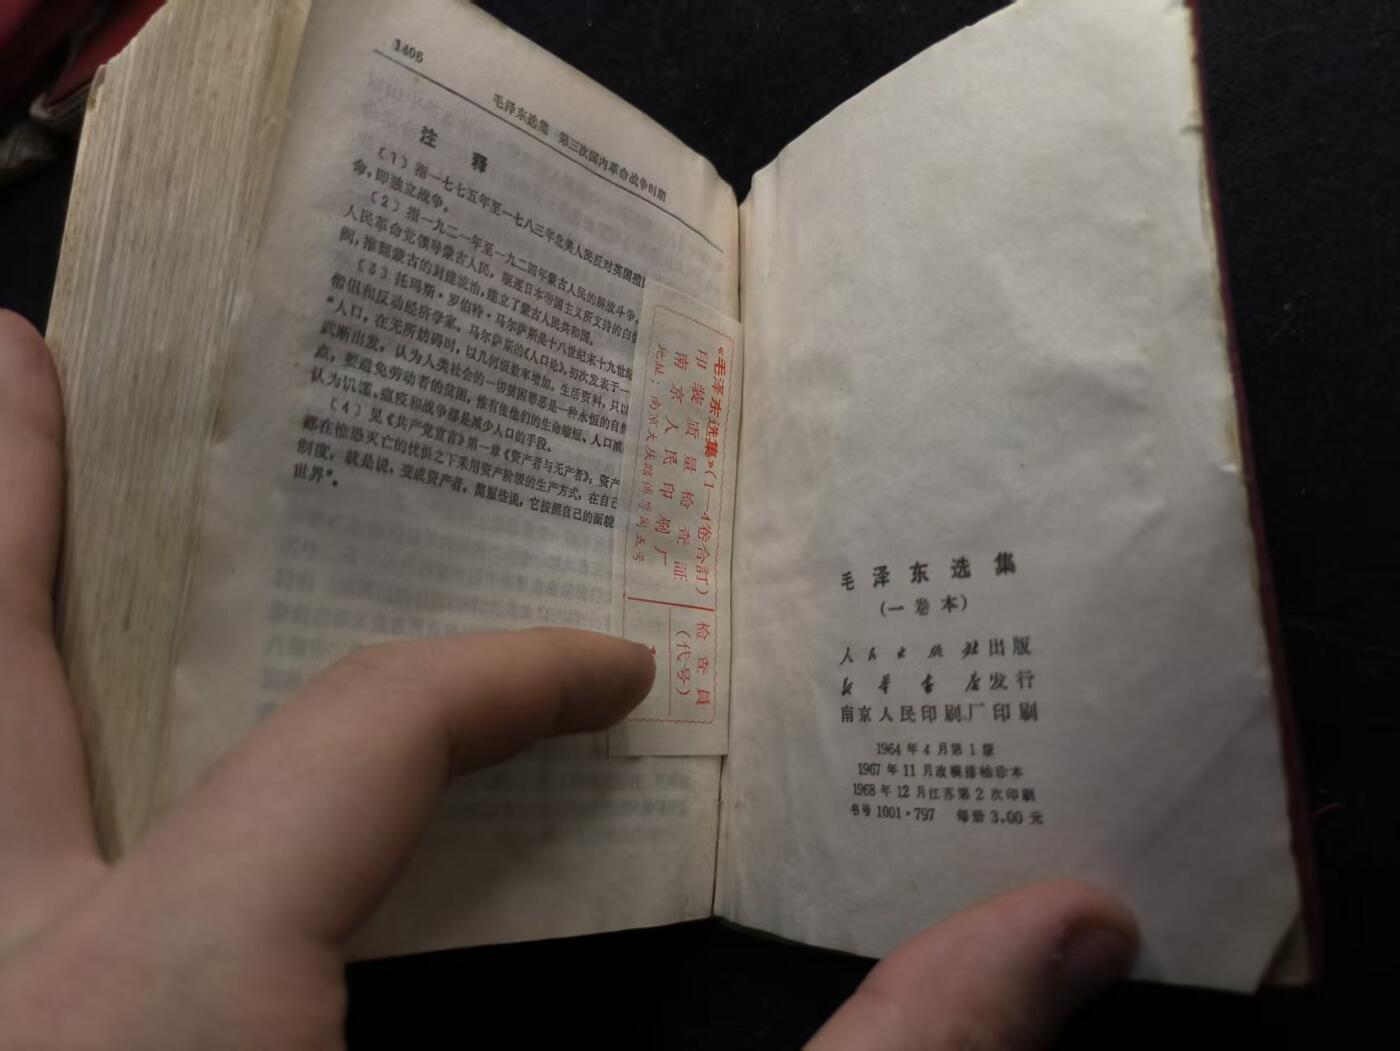 1406
毛泽东选集 第三次国内革命战争时期
注 释
〔1〕指一七七五年至一七八三年北美人民反对英国殖
命,即独立战争。
〔2〕指一九二一年至一九二四年蒙古人民的解放斗争。
人民革命党领导蒙古人民,驱逐日本帝国主义所支持的白
阀,推翻蒙古的封建统治,建立了蒙古人民共和国。
〔3〕托玛斯·罗伯特·马尔萨斯是十八世纪末十九世纪
僧侣和反动经济学家。马尔萨斯的《人口论》,初次发表于一
“人口,在无所妨碍时,以几何级数率增加。生活资料,只以
武断出发,认为人类社会的一切贫困罪恶是一种永恒的自然
点,要避免劳动者的贫困,惟有使他们的生命缩短、人口减
认为饥馑、瘟疫和战争都是减少人口的手段。
〔4〕见《共产党宣言》第一章《资产者与无产者》:资产
都在惟恐灭亡的忧惧之下采用资产阶级的生产方式,在自己
制度,就是说,变成资产者。简短些说,它按照自己的面貌
世界”。
《毛泽东选集》(1—4卷合訂)
印装质量检查証
南京人民印刷厂
地址:南京大庆路 五号
检查員
(代号)
毛泽东选集
(一卷本)
人民出版社出版
新华书店发行
南京人民印刷厂印刷
1964年4月第1版
1967年11月改横排袖珍本
1968年12月江苏第2次印刷
书号1001·797 每册3.00元